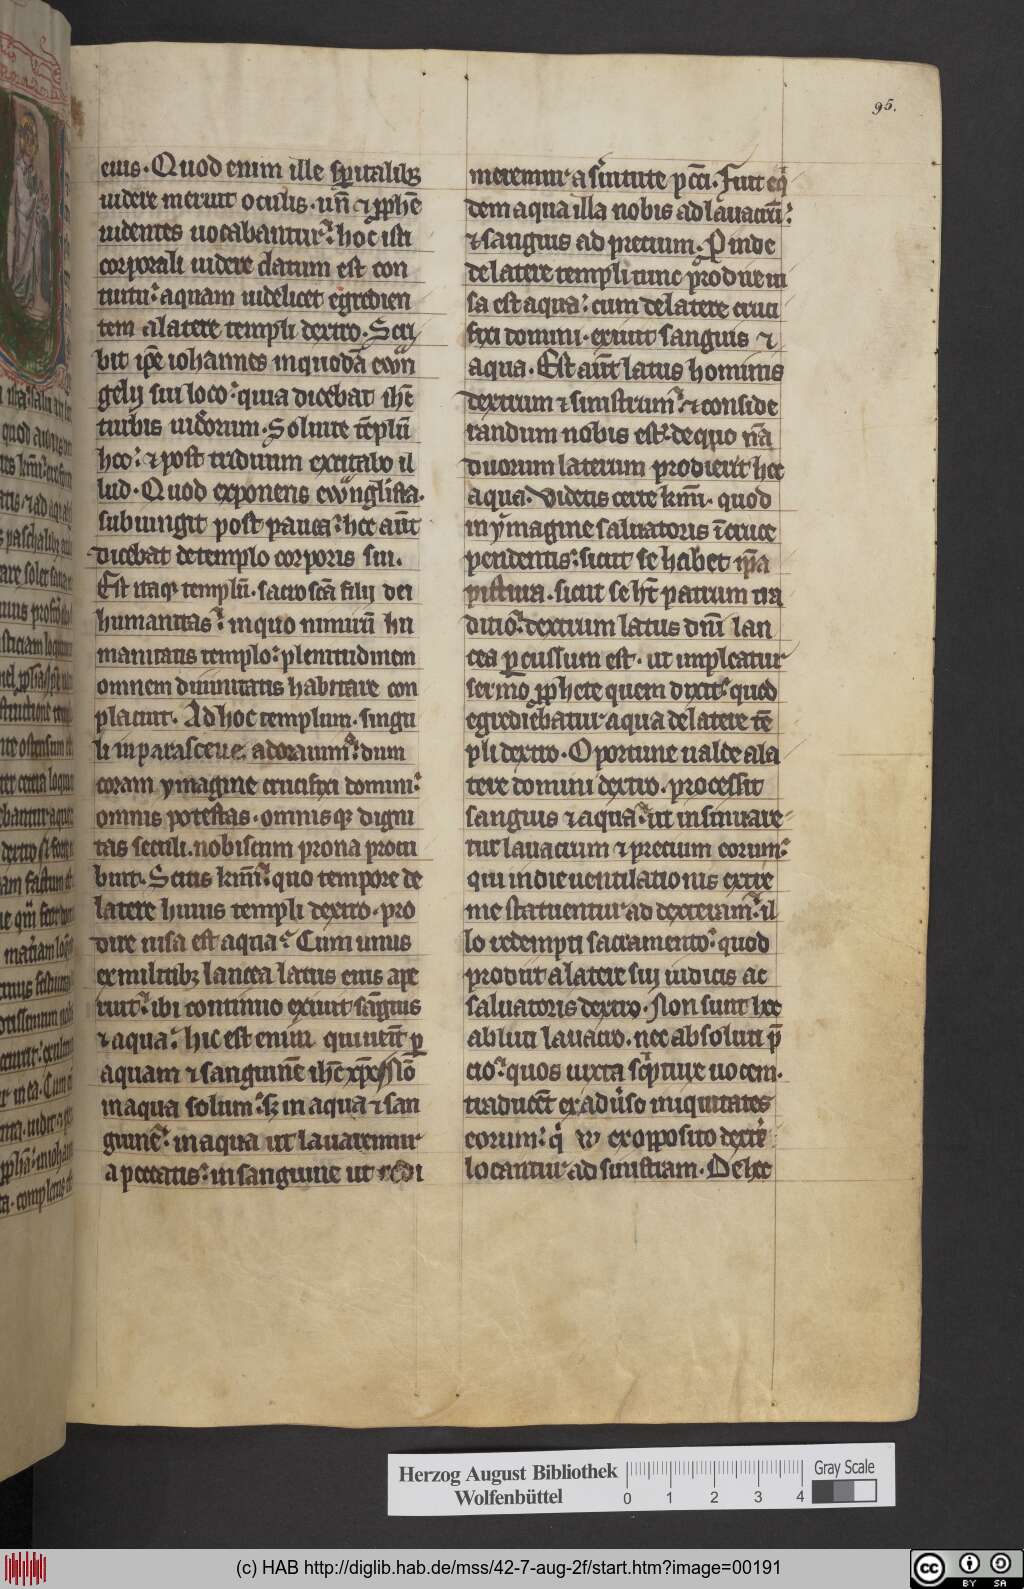 95.
eius. Quod enim ille sp̄italibꝫ
uidere meruit oculis. un̄ ⁊ ꝓphe̅
uidentes uocabantur: hoc isti
corporali uidere datum est con
tuitu: aquam uidelicet egredien
tem a latere templi dextro. Scri
bit ip̄e iohannes in quodā ewan
gelij sui loco: quia dicebat ihc̄
turbis iudeorum. Soluite te̅plū
hoc: ⁊ post triduum excitabo il
lud. Quod exponens ewanglista.
subiungit post pauca: hec aūt
dicebat de templo corporis sui.
Est itaqꝫ templū. sacroscā filij dei
humanitas: in quo nimirū hu
manitatis templo: plenitudinem
omnem diuinitatis habitare con
placuit. Ad hoc templum. singu
li in parasceue. adorauimꝰ: dum
coram ymagine crucifixi domini:
omnis potestas. omnisqꝫ digni
tas seculi. nobiscum prona procu
buit. Scitis kmī: quo tempore de
latere huius templi dextro. pro
dire uisa est aqua: Cum unus
ex militibꝫ lancea latus eius ape
ruit: ibi continuo exiuit sāguis
⁊ aqua: hic est enim qui uenit ꝑ
aquam ⁊ sanguinē ihc̄ xp̄c. Nō
in aqua solum: sꝫ in aqua ⁊ san
guine: in aqua ut lauaremur
a peccatis: in sanguine ut redi
meremur a s̉uitute pcc̄i. Fuit eqͥ
dem aqua illa nobis ad lauacrū:
⁊ sanguis ad precium. Proinde
de latere templi tunc produc ui
sa est aqua: cum de latere cruci
fixi domini. exiuit sanguis ⁊
aqua. Est aūt latus hominis
dextrum ⁊ sinistrum: ⁊ conside
randum nobis est: de quo nā
duorum laterum prodierit hec
aqua. Videtis certe kmī. quod
in ymagine saluatoris ī cruce
pendentis: sicut se habet ip̄a
pictura. sicut se ht̄ patrum tra
ditio: dextrum latus dnī lan
cea ꝑcussum est. ut impleatur
sermo ꝓphete quem dixit: quod
egrediebatur aqua de latere te̅
pli dextro. Oportune ualde a la
tere domini dextro. processit
sanguis ⁊ aqua: ut insinuare
tur lauacrum ⁊ precium eorum:
qui in die uentilationis extre
me statuentur ad dexteram: il
lo redempti sacramento: quod
prodiit a latere sui iudicis ac
saluatoris dextro. Non sunt hec
abluti lauacro. nec absoluti p̄
cio: quos iuxta scͥpture uocem.
traducēt ex adūso iniquitates
eorum: qͥ ex opposito dextre
locantur ad sinistram. De hec
Herzog August Bibliothek
Wolfenbüttel
0 1 2 3 4
Gray Scale
(c) HAB http://diglib.hab.de/mss/42-7-aug-2f/start.htm?image=00191
cc BY SA